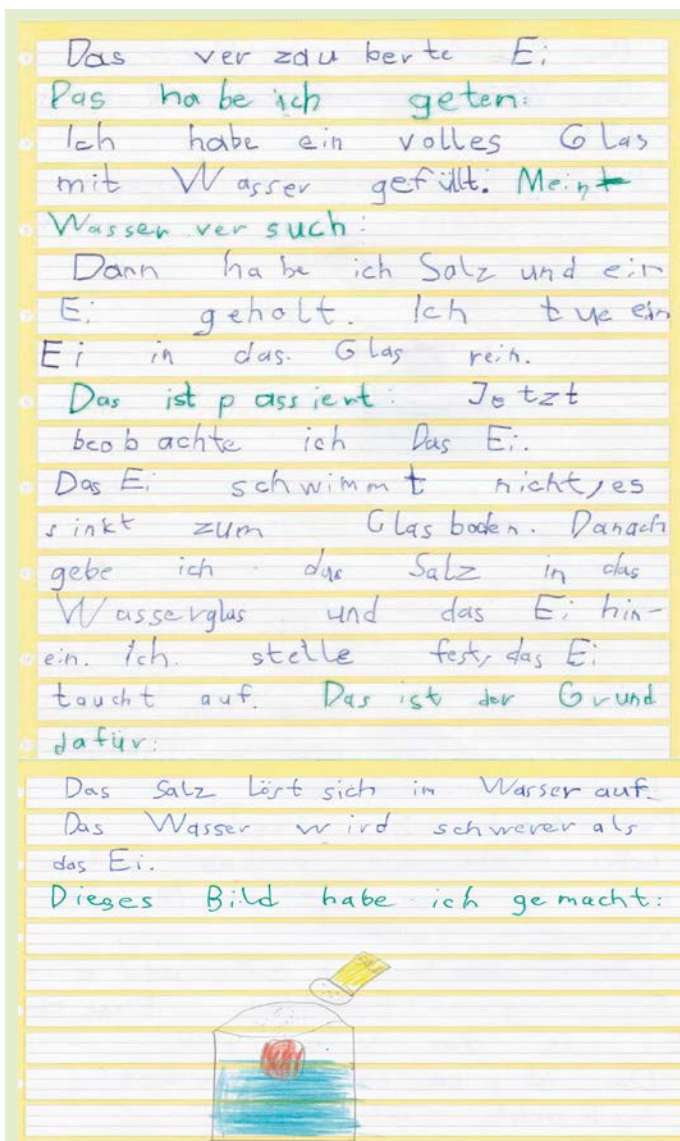 Das verzauberte Ei
Das habe ich geten:
Ich habe ein volles Glas
mit Wasser gefüllt. Mein
Wasserversuch:
Dann habe ich Salz und ein
Ei geholt. Ich tue ein
Ei in das Glas rein.
Das ist passiert: Jetzt
beobachte ich Das Ei.
Das Ei schwimmt nicht, es
sinkt zum Glasboden. Danach
gebe ich das Salz in das
Wasserglas und das Ei hin-
ein. Ich stelle fest, das Ei
taucht auf. Das ist der Grund
dafür:
Das Salz löst sich in Wasser auf.
Das Wasser wird schwerer als
das Ei.
Dieses Bild habe ich gemacht: